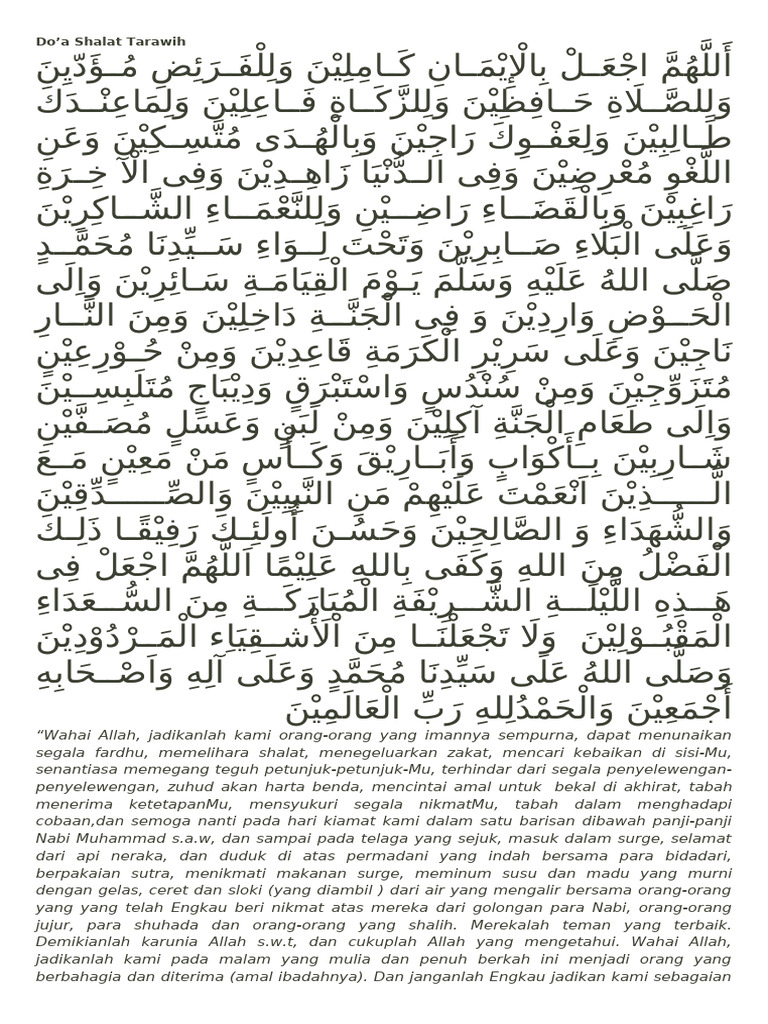 Do’a Shalat Tarawih
أَللَّهُمَّ اجْعَـلْ بِالْإِيْمَـانِ كَـامِلِيْنَ وَلِلْفَـرَئِضِ مُـؤَدّيِنَ
وَلِلصَّـلَاةِ حَـافِظِيْنَ وَلِلزَّكَـاةِ فَـاعِلِيْنَ وَلِمَاعِنْـدَكَ
طَـالِبِيْنَ وَلِعَفْـوِكَ رَاجِيْنَ وَبِالْهُـدَى مُتَّسِـكِيْنَ وَعَنِ
اللَّغْوِ مُعْرِضِيْنَ وَفِى الـدُّنْيَا زَاهِـدِيْنَ وَفِى الْآ خِـرَةِ
رَاغِبِيْنَ وَبِالْقَضَـاءِ رَاضِـيْنِ وَلِلنَّعْمَـاءِ الشَّـاكِرِيْنَ
وَعَلَى الْبَلَاءِ صَـابِرِيْنَ وَتَحْتَ لِـوَاءِ سَـيِّدِنَا مُحَمَّـدٍ
صَلَّى اللهُ عَلَيْهِ وَسَلَّمَ يَـوْمَ الْقِيَامَـةِ سَـائِرِيْنَ وَاِلَى
الْحَـوْضِ وَارِدِيْنَ وَ فِى الْجَنَّـةِ دَاخِلِيْنَ وَمِنَ النَّـارِ
نَاجِيْنَ وَعَلَى سَرِيْرِ الْكَرَمَةِ قَاعِدِيْنَ وَمِنْ حُـوْرِعِيْنٍ
مُتَزَوِّجِيْنَ وَمِنْ سُنْدُسٍ وَاسْتَبْرَقٍ وَدِيْبَاجٍ مُتَلَبِسِـيْنَ
وَاِلَى طَعَامِ الْجَنَّةِ آكِلِيْنَ وَمِنْ لَبَنٍ وَعَسَلٍ مُصَـفَّيْنِ
شَـارِبِيْنَ بِـأَكْوَابٍ وَأَبَـارِيْقَ وَكَـأْسٍ مَنْ مَعِيْنٍ مَـعَ
الَّـذِيْنَ اَنْعَمْتَ عَلَيْهِمْ مَنِ النَّبِيِيْنَ وَالصِّـدِّقِيْنَ
وَالشُّهَدَاءِ وَ الصَّالِحِيْنَ وَحَسُـنَ أُولَئِـكَ رَفِيْقًـا ذَلِـكَ
الْفَضْلُ مِنَ اللهِ وَكَفَى بِاللهِ عَلِيْمًا اَللَّهُمَّ اجْعَلْ فِى
هَـذِهِ اللَّيْلَـةِ الشَّـرِيْفَةِ الْمُبَارَكَـةِ مِنَ السُّـعَدَاءِ
الْمَقْبُـوْلِيْنَ وَلَا تَجْعَلْنَـا مِنَ اْلأَشْـقِيَاءِ الْمَـرْدُوْدِيْنَ
وَصَلَّى اللهُ عَلَى سَيِّدِنَا مُحَمَّدٍ وَعَلَى آلِهِ وَاَصْـحَابِهِ
أَجْمَعِيْنَ وَالْحَمْدُلِلهِ رَبِّ الْعَالَمِيْنَ
“Wahai Allah, jadikanlah kami orang-orang yang imannya sempurna, dapat menunaikan
segala fardhu, memelihara shalat, menegeluarkan zakat, mencari kebaikan di sisi-Mu,
senantiasa memegang teguh petunjuk-petunjuk-Mu, terhindar dari segala penyelewengan-
penyelewengan, zuhud akan harta benda, mencintai amal untuk bekal di akhirat, tabah
menerima ketetapanMu, mensyukuri segala nikmatMu, tabah dalam menghadapi
cobaan,dan semoga nanti pada hari kiamat kami dalam satu barisan dibawah panji-panji
Nabi Muhammad s.a.w, dan sampai pada telaga yang sejuk, masuk dalam surge, selamat
dari api neraka, dan duduk di atas permadani yang indah bersama para bidadari,
berpakaian sutra, menikmati makanan surge, meminum susu dan madu yang murni
dengan gelas, ceret dan sloki (yang diambil ) dari air yang mengalir bersama orang-orang
yang yang telah Engkau beri nikmat atas mereka dari golongan para Nabi, orang-orang
jujur, para shuhada dan orang-orang yang shalih. Merekalah teman yang terbaik.
Demikianlah karunia Allah s.w.t, dan cukuplah Allah yang mengetahui. Wahai Allah,
jadikanlah kami pada malam yang mulia dan penuh berkah ini menjadi orang yang
berbahagia dan diterima (amal ibadahnya). Dan janganlah Engkau jadikan kami sebagaian